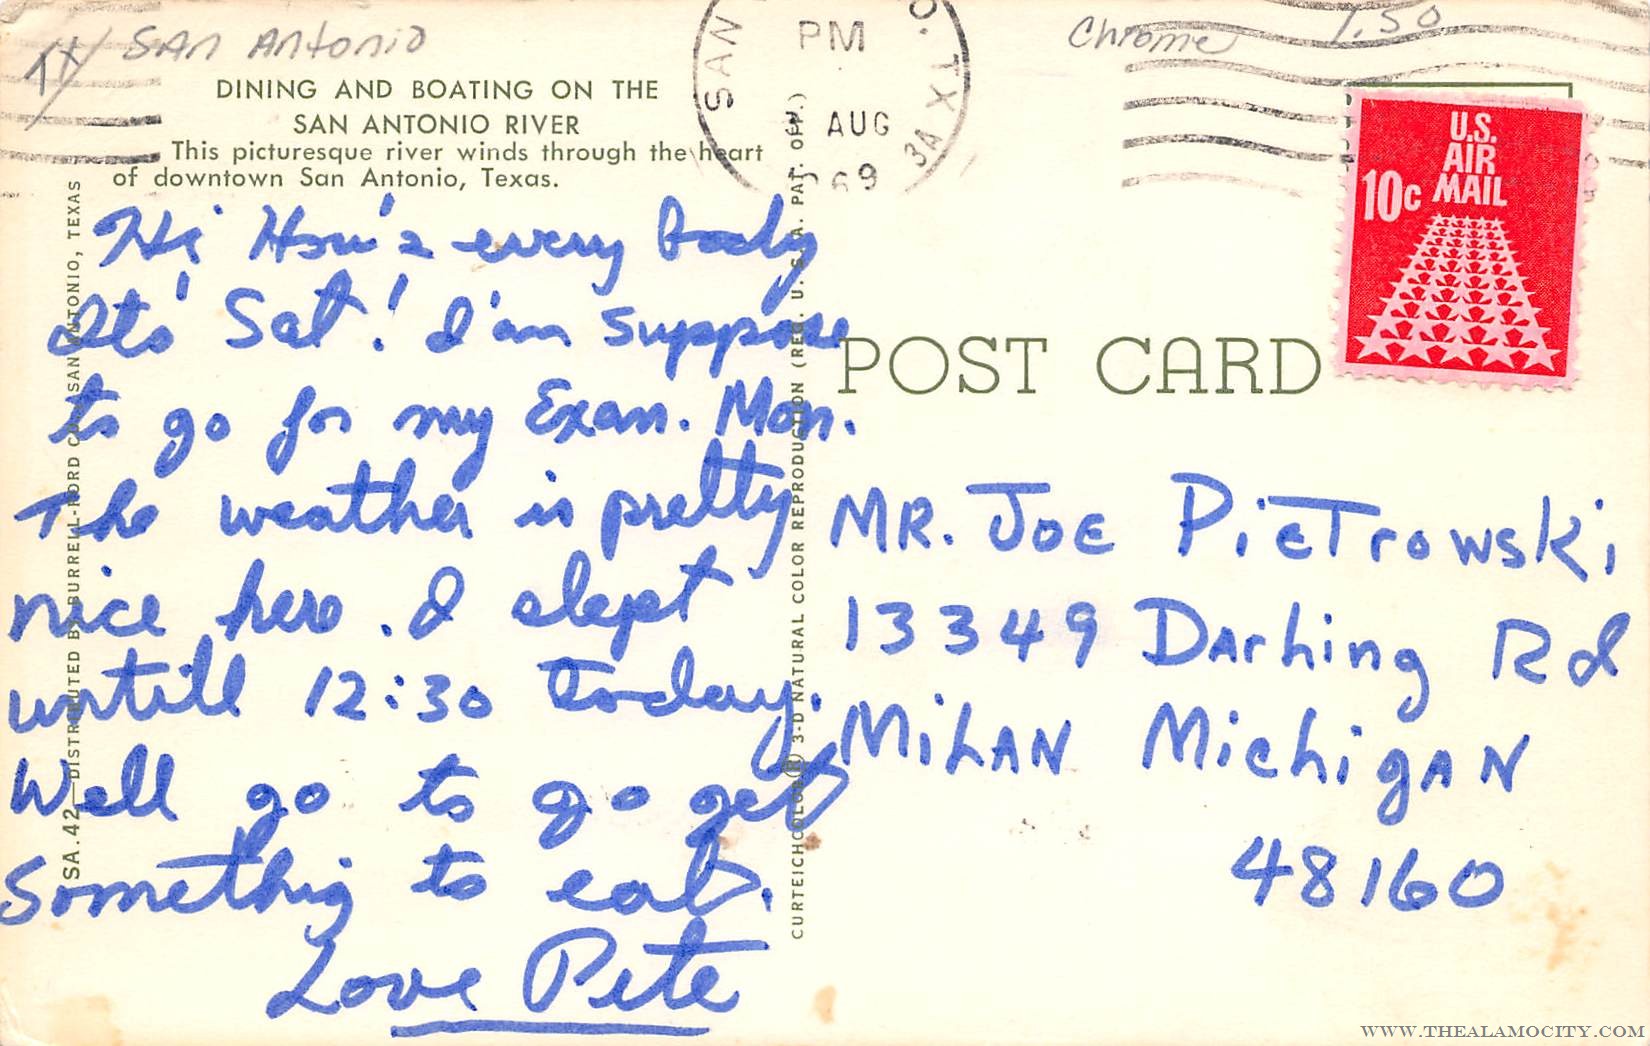 TX/ SAN Antonio
Chrome 1.50
DINING AND BOATING ON THE
SAN ANTONIO RIVER
This picturesque river winds through the heart
of downtown San Antonio, Texas.
SAN
PM
AUG
69
TX
3A
U.S.
AIR
MAIL
10c
POST CARD
Hi How's every body
Its' Sat! I'am suppose
to go for my Exam. Mon.
The weather is pretty
nice here. I slept
untill 12:30 today.
Well go to go get
Something to eat.
Love Pete
MR. JOE PiETrowski
13349 Darhing Rd
MiLAN MichigAN
48160
SA.42—DISTRIBUTED BY BURRELL-FORD CO., SAN ANTONIO, TEXAS
CURTEICHCOLOR(R) 3-D NATURAL COLOR REPRODUCTION (REG. U.S.A. PAT. OFF.)
WWW.THEALAMOCITY.COM